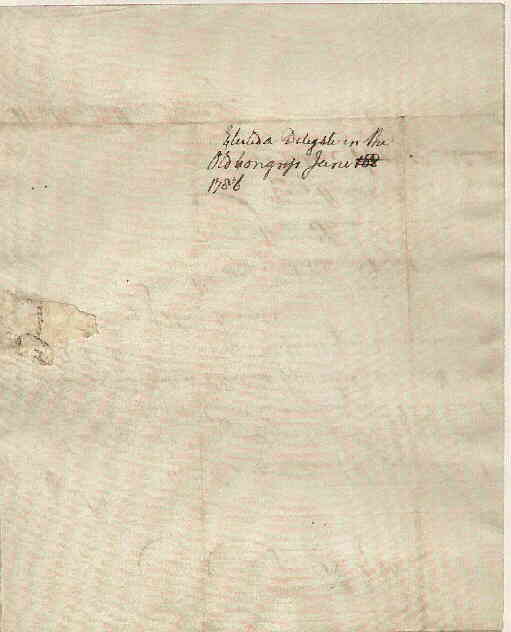 Elected a Delegate in the
Old Congress June
1786